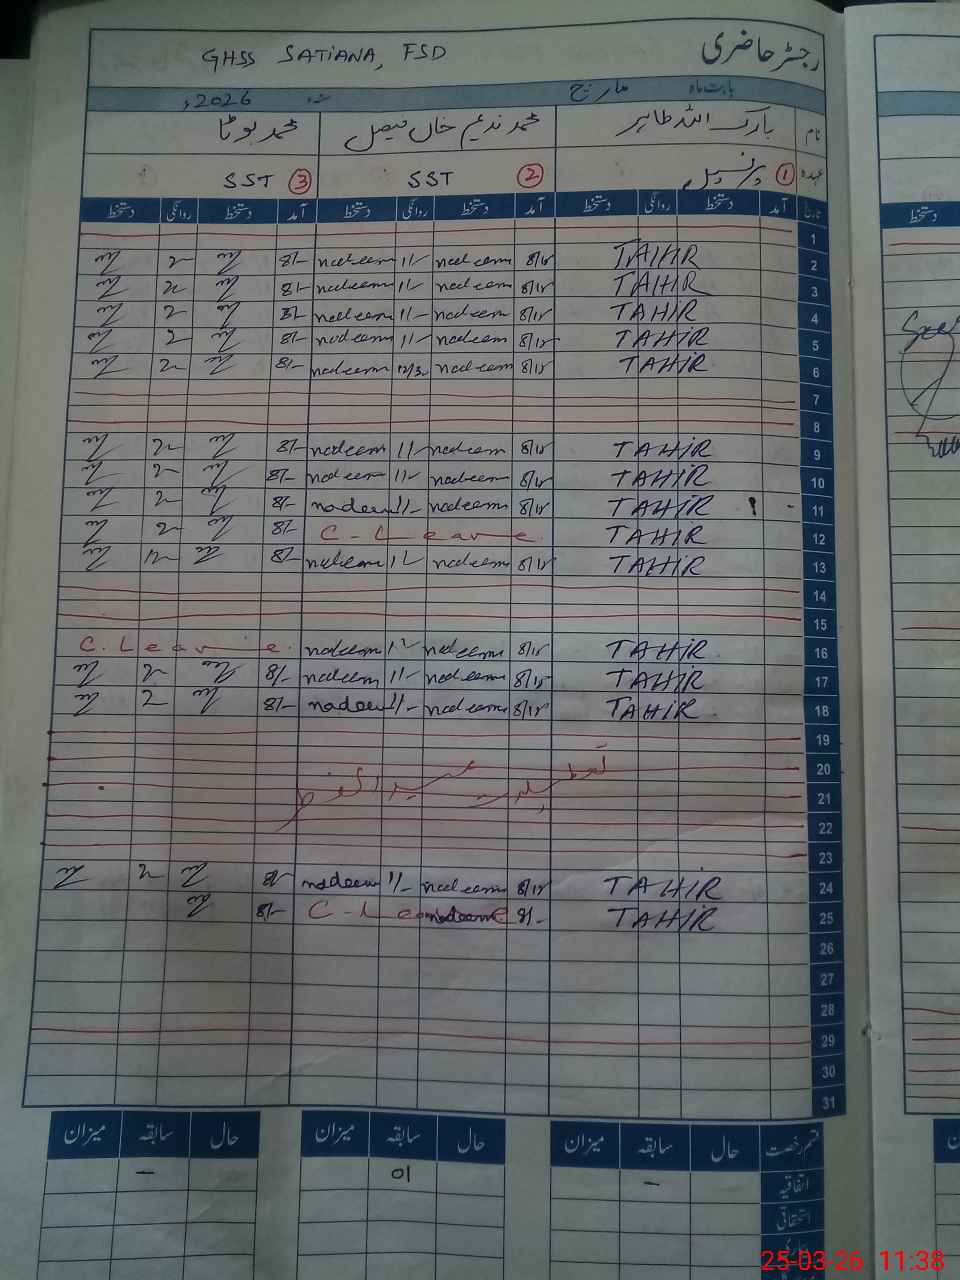 GHSS SATIANA, FSD رجسٹر حاضری
بابت ماہ مارچ 2026ء
نام بارک اللہ طاہر محمد ندیم خاں فیصل محمد بوٹا
عہدہ ① پرنسپل ② SST ③ SST
تاریخ آمد دستخط روانگی دستخط آمد دستخط روانگی دستخط آمد دستخط روانگی دستخط
1
2 TAHIR 8/15 nadeem 11/- nadeem 8/- 2
3 TAHIR 8/15 nadeem 11/- nadeem 8/- 2
4 TAHIR 8/15 nadeem 11/- nadeem 8/- 2
5 TAHIR 8/15 nadeem 11/- nadeem 8/- 2
6 TAHIR 8/15 nadeem 12/30 nadeem 8/- 2
7
8
9 TAHIR 8/15 nadeem 11/- nadeem 8/- 2
10 TAHIR 8/15 nadeem 11/- nadeem 8/- 2
11 TAHIR 8/15 nadeem 11/- nadeem 8/- 2
12 TAHIR C-Leave 8/- 2
13 TAHIR 8/15 nadeem 12 nadeem 8/- 12
14
15
16 TAHIR 8/15 nadeem 11/- nadeem C.Leave
17 TAHIR 8/15 nadeem 11/- nadeem 8/- 2
18 TAHIR 8/15 nadeem 11/- nadeem 8/- 2
19
20
تعطیلات عید الفطر
21
22
23
24 TAHIR 8/15 nadeem 11/- nadeem 8/- 2
25 TAHIR 8/- nadeem C-Leave 8/-
26
27
28
29
30
31
قسم رخصت حال سابقہ میزان حال سابقہ میزان حال سابقہ میزان
اتفاقیہ - 01 -
استحقاقی
بیماری
25-03-26 11:38